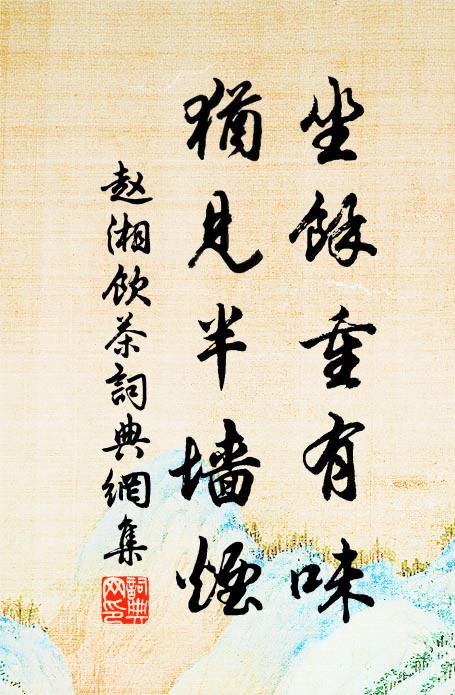 坐餘重有味
猶見半墙煙
赵湘飲茶詞典網集
詞典